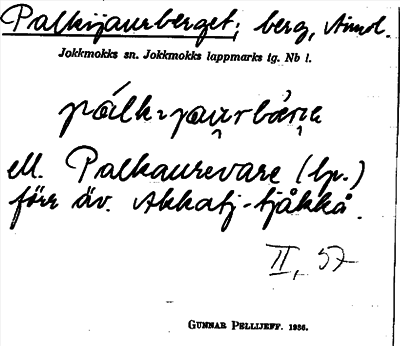 Palkijaurberget; berg,
Jokkmokks sn. Jokkmokks lappmarks tg. Nb l.
ell. Palkaurevare (lp.)
förr äv. Akkatj-tjåkkå.
II, 57
GUNNAR PELLIJEFF. 1936.